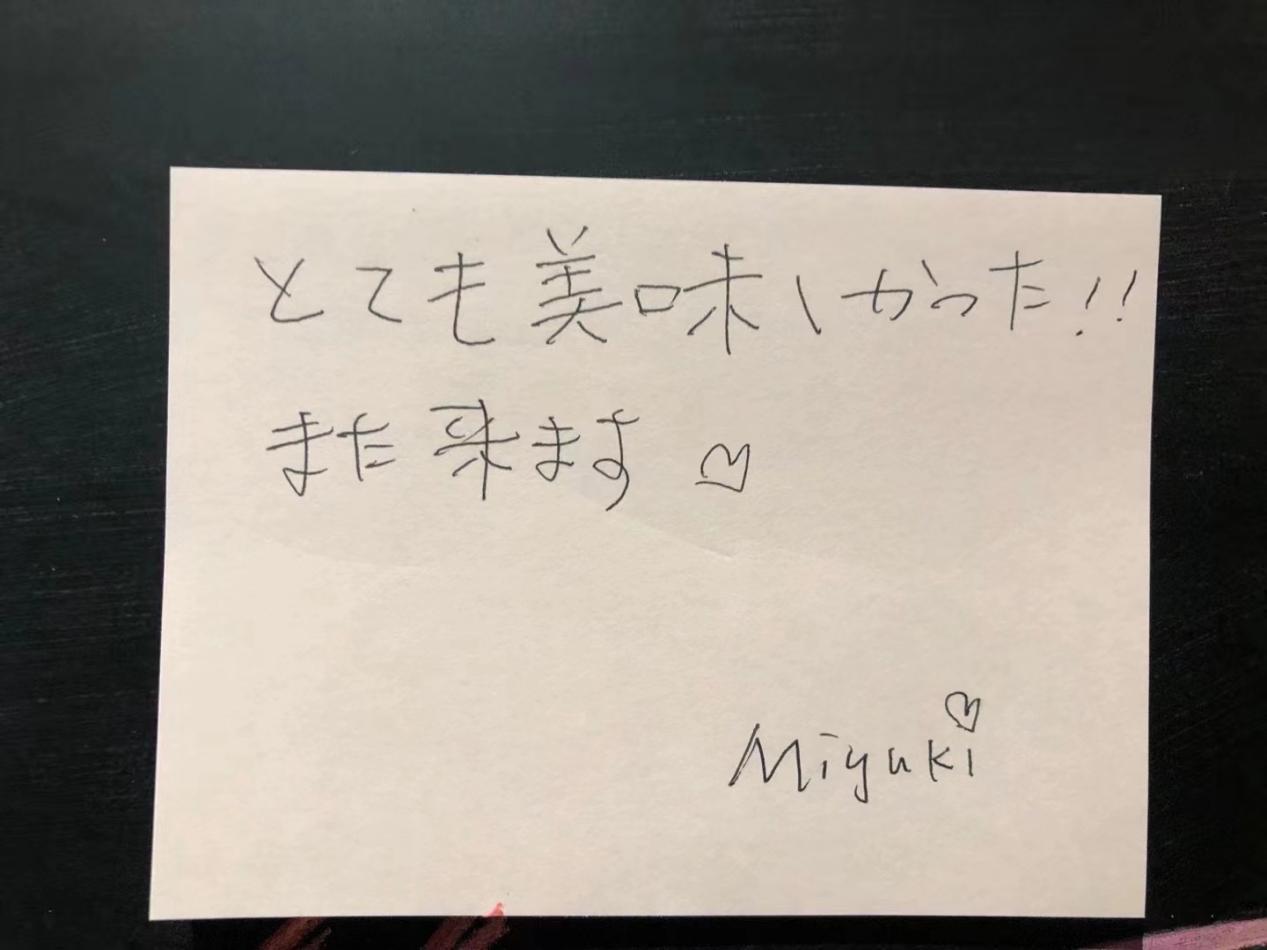 とても美味しかった!!
また来ます♡
Miyuki♡